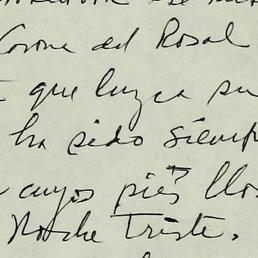 Corona del Rosal
que luzca su
ha sido siemp
cuyos piés llo
Noche Triste.